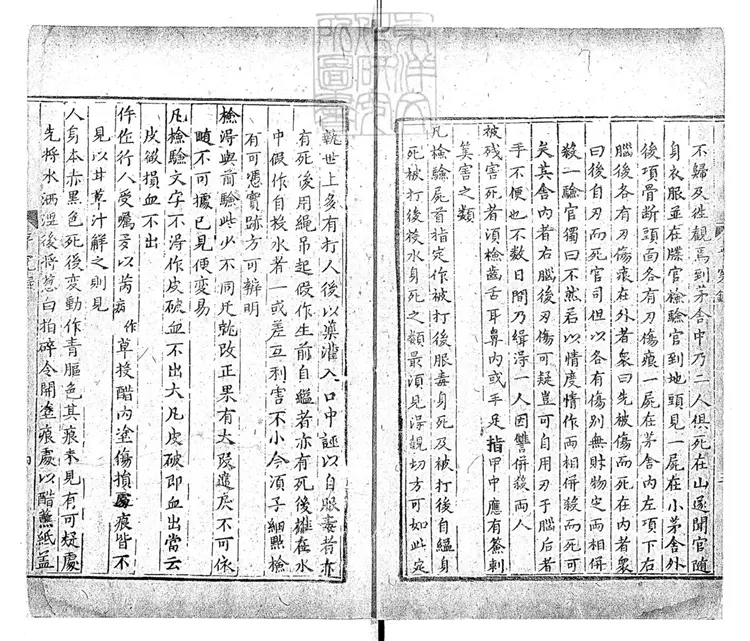 不歸及往觀焉到茅舍中乃二人俱死在山遂聞官隨
身衣服並在牒官檢驗官到地頭見一屍在小茅舍外
後項骨斷頭面各有刃傷痕一屍在茅舍內左項下右
腦後各有刃傷痕在外者衆曰先被傷而死在內者衆
曰後自刃而死官司但以各有傷別無財物定兩相併
殺一驗官獨曰不然若以情度情作兩相併殺而死可
矣其舍內者右腦後刃傷可疑豈可自用刃于腦后者
手不便也不数日間乃緝淂一人因讐併殺兩人
被残害死者湏檢齒舌耳鼻內或手足指甲中應有籤刺
筭害之類
凡檢驗屍首指定作被打後服毒身死及被打後自縊身
死被打後投水身死之類最湏見淂親切方可如此定
執世上多有打人後以藥灌入口中誣以自服毒者亦
有死後用绳吊起假作生前自縊者亦有死後推在水
中假作自投水者一或差互利害不小今湏子細㸃檢
有可憑實跡方可辨明
檢淂與前驗些少不同凡就改正果有大叚違戾不可依
隨不可據已見便変易
凡檢驗文字不淂作皮破血不出大凡皮破即血出當云
皮微損血不出
仵作行人受囑
草投醋內塗傷損處痕皆不
見以甘草汁解之則見
人身本赤黑色死後変動作青䐵色其痕未見有可疑處
先将水洒湿後将葱白拍碎令開塗痕處以醋蘸紙盖